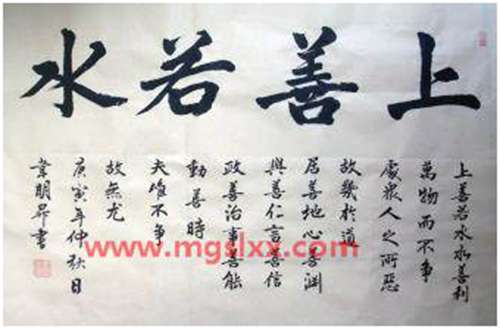 上善若水
上善若水水善利
萬物而不争
處衆人之所惡
故幾於道
居善地心善渊
與善仁言善信
政善治事善能
動善時
夫唯不争
故無尤
庚寅年仲秋日
韋明書
www.mgslxx.com